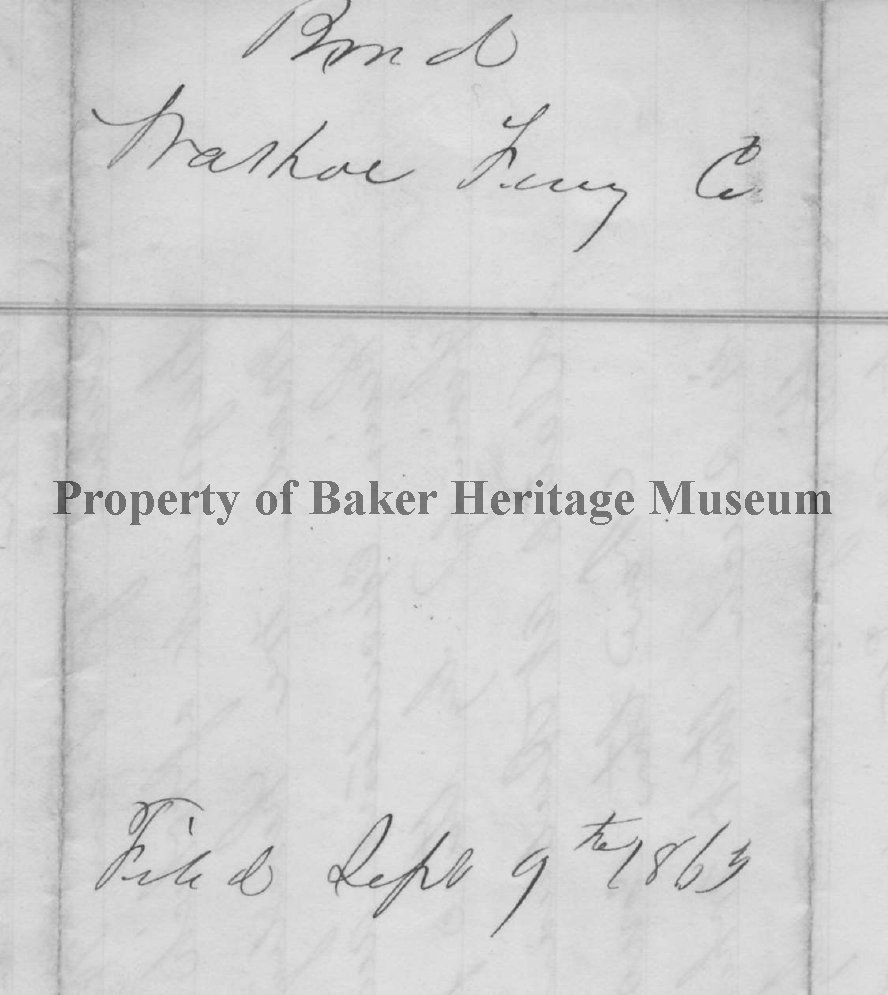 Bond
Washoe Ferry Co
Property of Baker Heritage Museum
Filed Sept 9th 1863